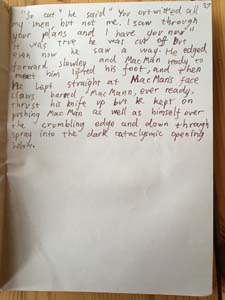 "So cat" he said "You outwitted all
my men, but not me. I saw through
your plans and I have you now"
it was true he was cut off but
even now he saw a way. He edged
forward slowley and MacMan ready to
meet him lifted his foot, and then
he kept straight at MacMans face
claws barred, MacMann, ever ready.
thrust his knife up but he kept on
pushing MacMan as well as himself over
the crumbling edge and down through
spray into the dark cataclymic opening
below.